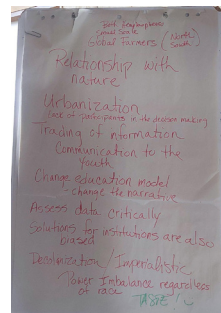 Small Scale
Global Farmers (North
South)
Relationship with
nature
Urbanization
Lack of participants in the decision making
Trading of information
Communication to the
youth
Change education model
- change the narrative
Assess data critically
Solutions for institutions are also
biased
Decolonization / Imperialistic
Power Imbalance regardless
of race